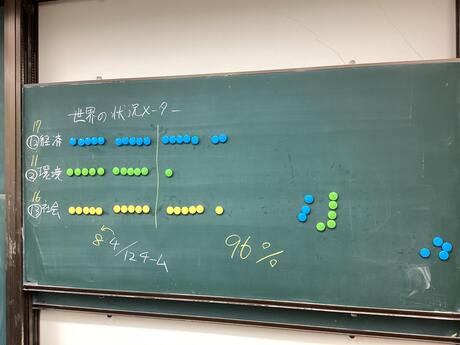 世界の状況メーター
17
⑫経済
11
②環境
16
⑬社会
8 4/12チーム
96%